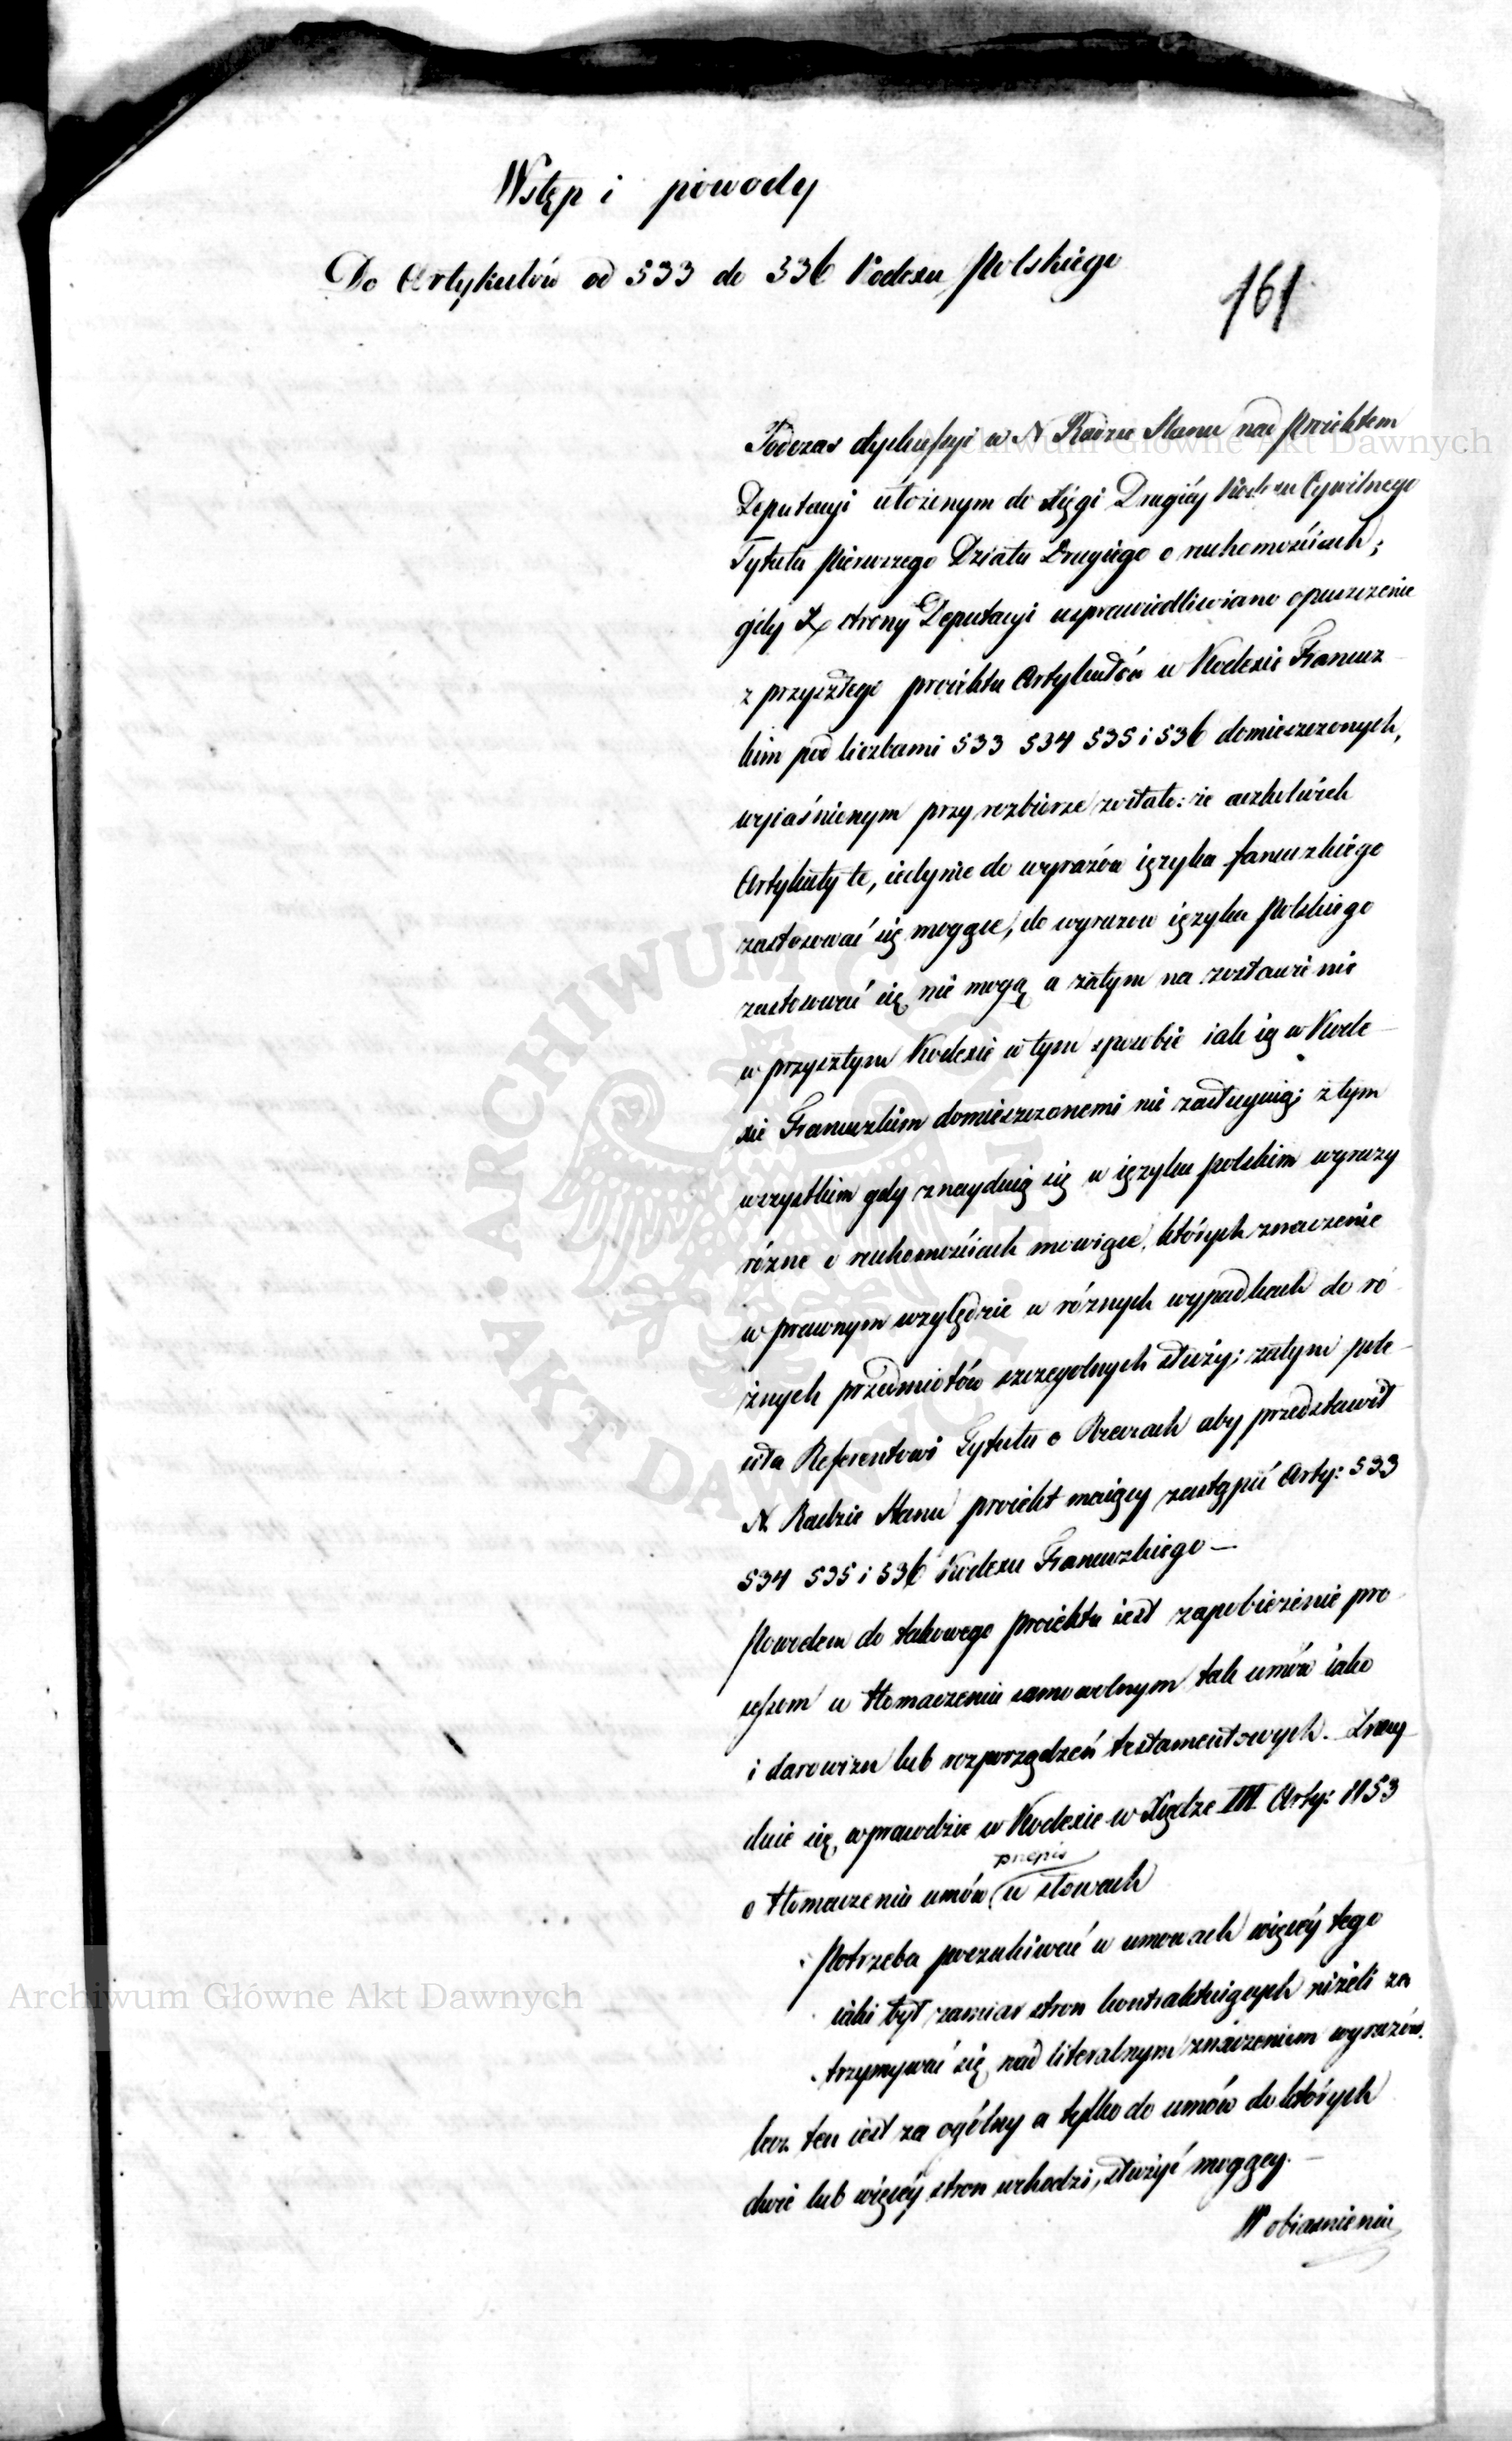 Wstęp i powody
Do Artykułów od 533 do 536 Kodexu Polskiego
161
Podczas dyskussyi w N Radzie Stanu nad Proiektem
Deputacyi ułożenym do Xięgi Drugiéy Kodexu Cywilnego
Tytułu Pierwszego Działu Drugiego o ruchomościach;
gdy Ze strony Deputacyi usprawiedliwiano opuszczenie
z przyszłego proiektu Artykułów w Kodexie Francuz
kim pod liczbami 533 534 535 i 536 domieszczonych,
wyiaśnionym przy rozbiorze zostało: że aczkolwiek
Artykuły te, iedynie do wyrazów ięzyka francuzkiego
zastosować się mogące, do wyrazow ięzyka Polskiego
zastosować się nie mogą a zatym na zostawienie
w przyszłym Kodexie w tym sposobie iak są w Kode-
xie Francuzkim domieszczonemi nie zasługuią; z tym
wszystkim gdy znayduią się w ięzyku polskim wyrazy
rózne o ruchomościach mowiące, których znaczenie
w prawnym względzie w róznych wypadkach do ró
żnych przedmiotów szczególnych służy; zatym pole-
ciła Referentowi Tytułu o Rzeczach aby przedstawił
N. Radzie Stanu proiekt maiący zastąpić Arty: 533
534 535 i 536 Kodexu Francuzkiego —
Powodem do takowego proiektu iest zapobieżenie pro
cessom w tłomaczeniu samowolnym tak umów iako
i darowizn lub rozporządzeń testamentowych. Znay-
duie się wprawdzie w Kodexie w Xiędze III Arty: 1153
przepis
o tłomaczeniu umów w słowach
Potrzeba poszukiwać w umowach więcéy tego
iaki był zamiar stron kontraktuiących niżeli za
trzymywać się nad literalnym znaczeniem wyrazów.
lecz ten iest za ogólny a tylko do umów do których
dwie lub więcéy stron wchodzi, służyć mogący. —
W obiasnieniu
Archiwum Główne Akt Dawnych
Archiwum Główne Akt Dawnych
ARCHIWUM GŁÓWNE · AKT DAWNYCH ·